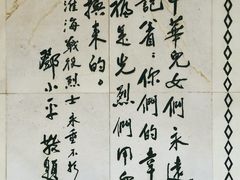 中华儿女们永远
記着:你們的幸
福是先烈們用血
換來的。
淮海戰役烈士永垂不朽
鄧小平 敬題